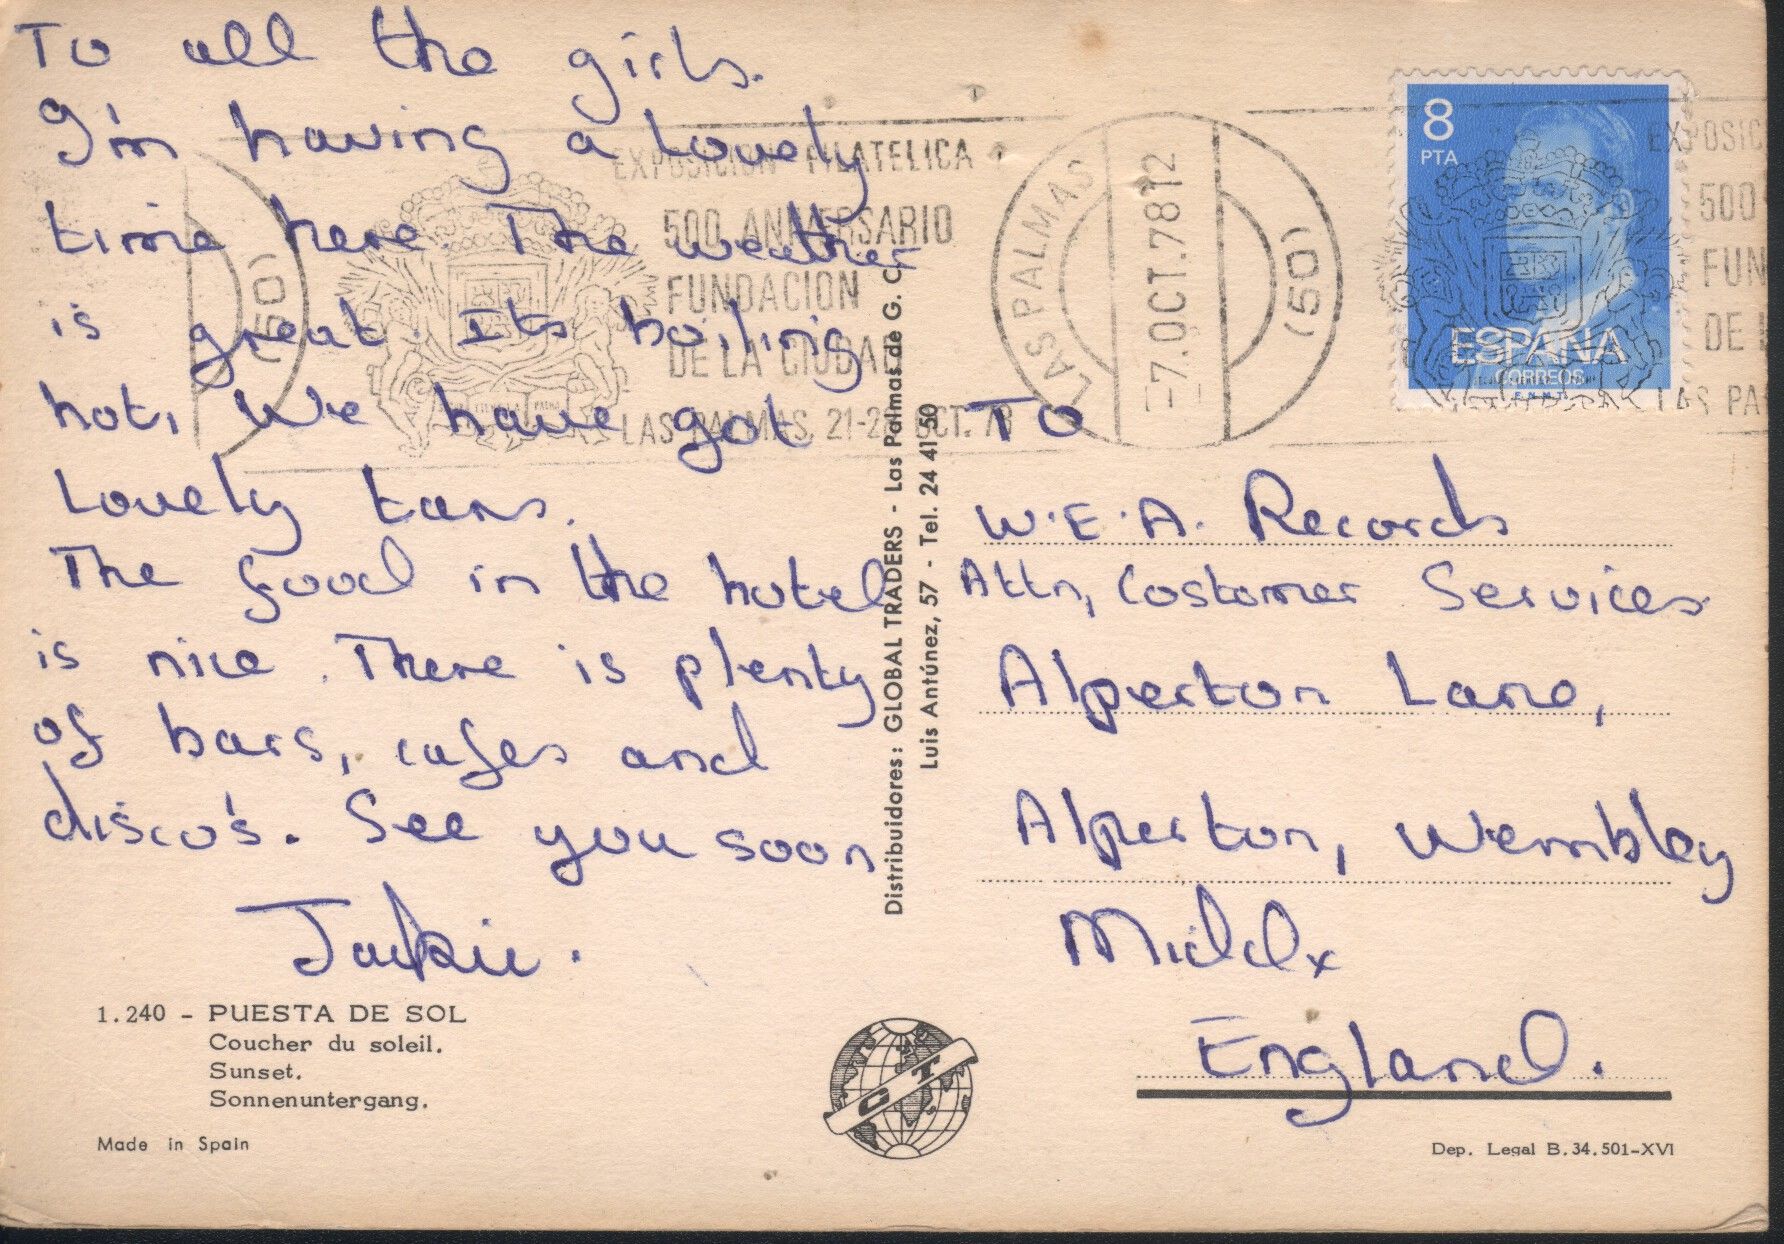 To all the girls.
I'm having a lovely
time here. The weather
is great. Its boiling
hot, We have got
Lovely tans.
The food in the hotel
is nice. There is plenty
of bars, cafes and
disco's. See you soon
Jackie.
1.240 - PUESTA DE SOL
Coucher du soleil.
Sunset.
Sonnenuntergang.
Made in Spain
EXPOSICION FILATELICA
500 ANIVERSARIO
FUNDACION
DE LA CIUDAD
LAS PALMAS, 21-2 OCT. 78
(50)
LAS PALMAS
-7.OCT.7812
(50)
8
PTA
ESPAÑA
CORREOS
F.N.M.T.
EXPOSIC
500
FUN
DE L
LAS PA
Distribuidores: GLOBAL TRADERS - Las Palmas de G. C.
Luis Antúnez, 57 - Tel. 24 41 50
TO
W.E.A. Records
Attn, Costomer Services
Alperton Lane,
Alperton, Wembley
Middx
England.
GT
Dep. Legal B.34.501-XVI